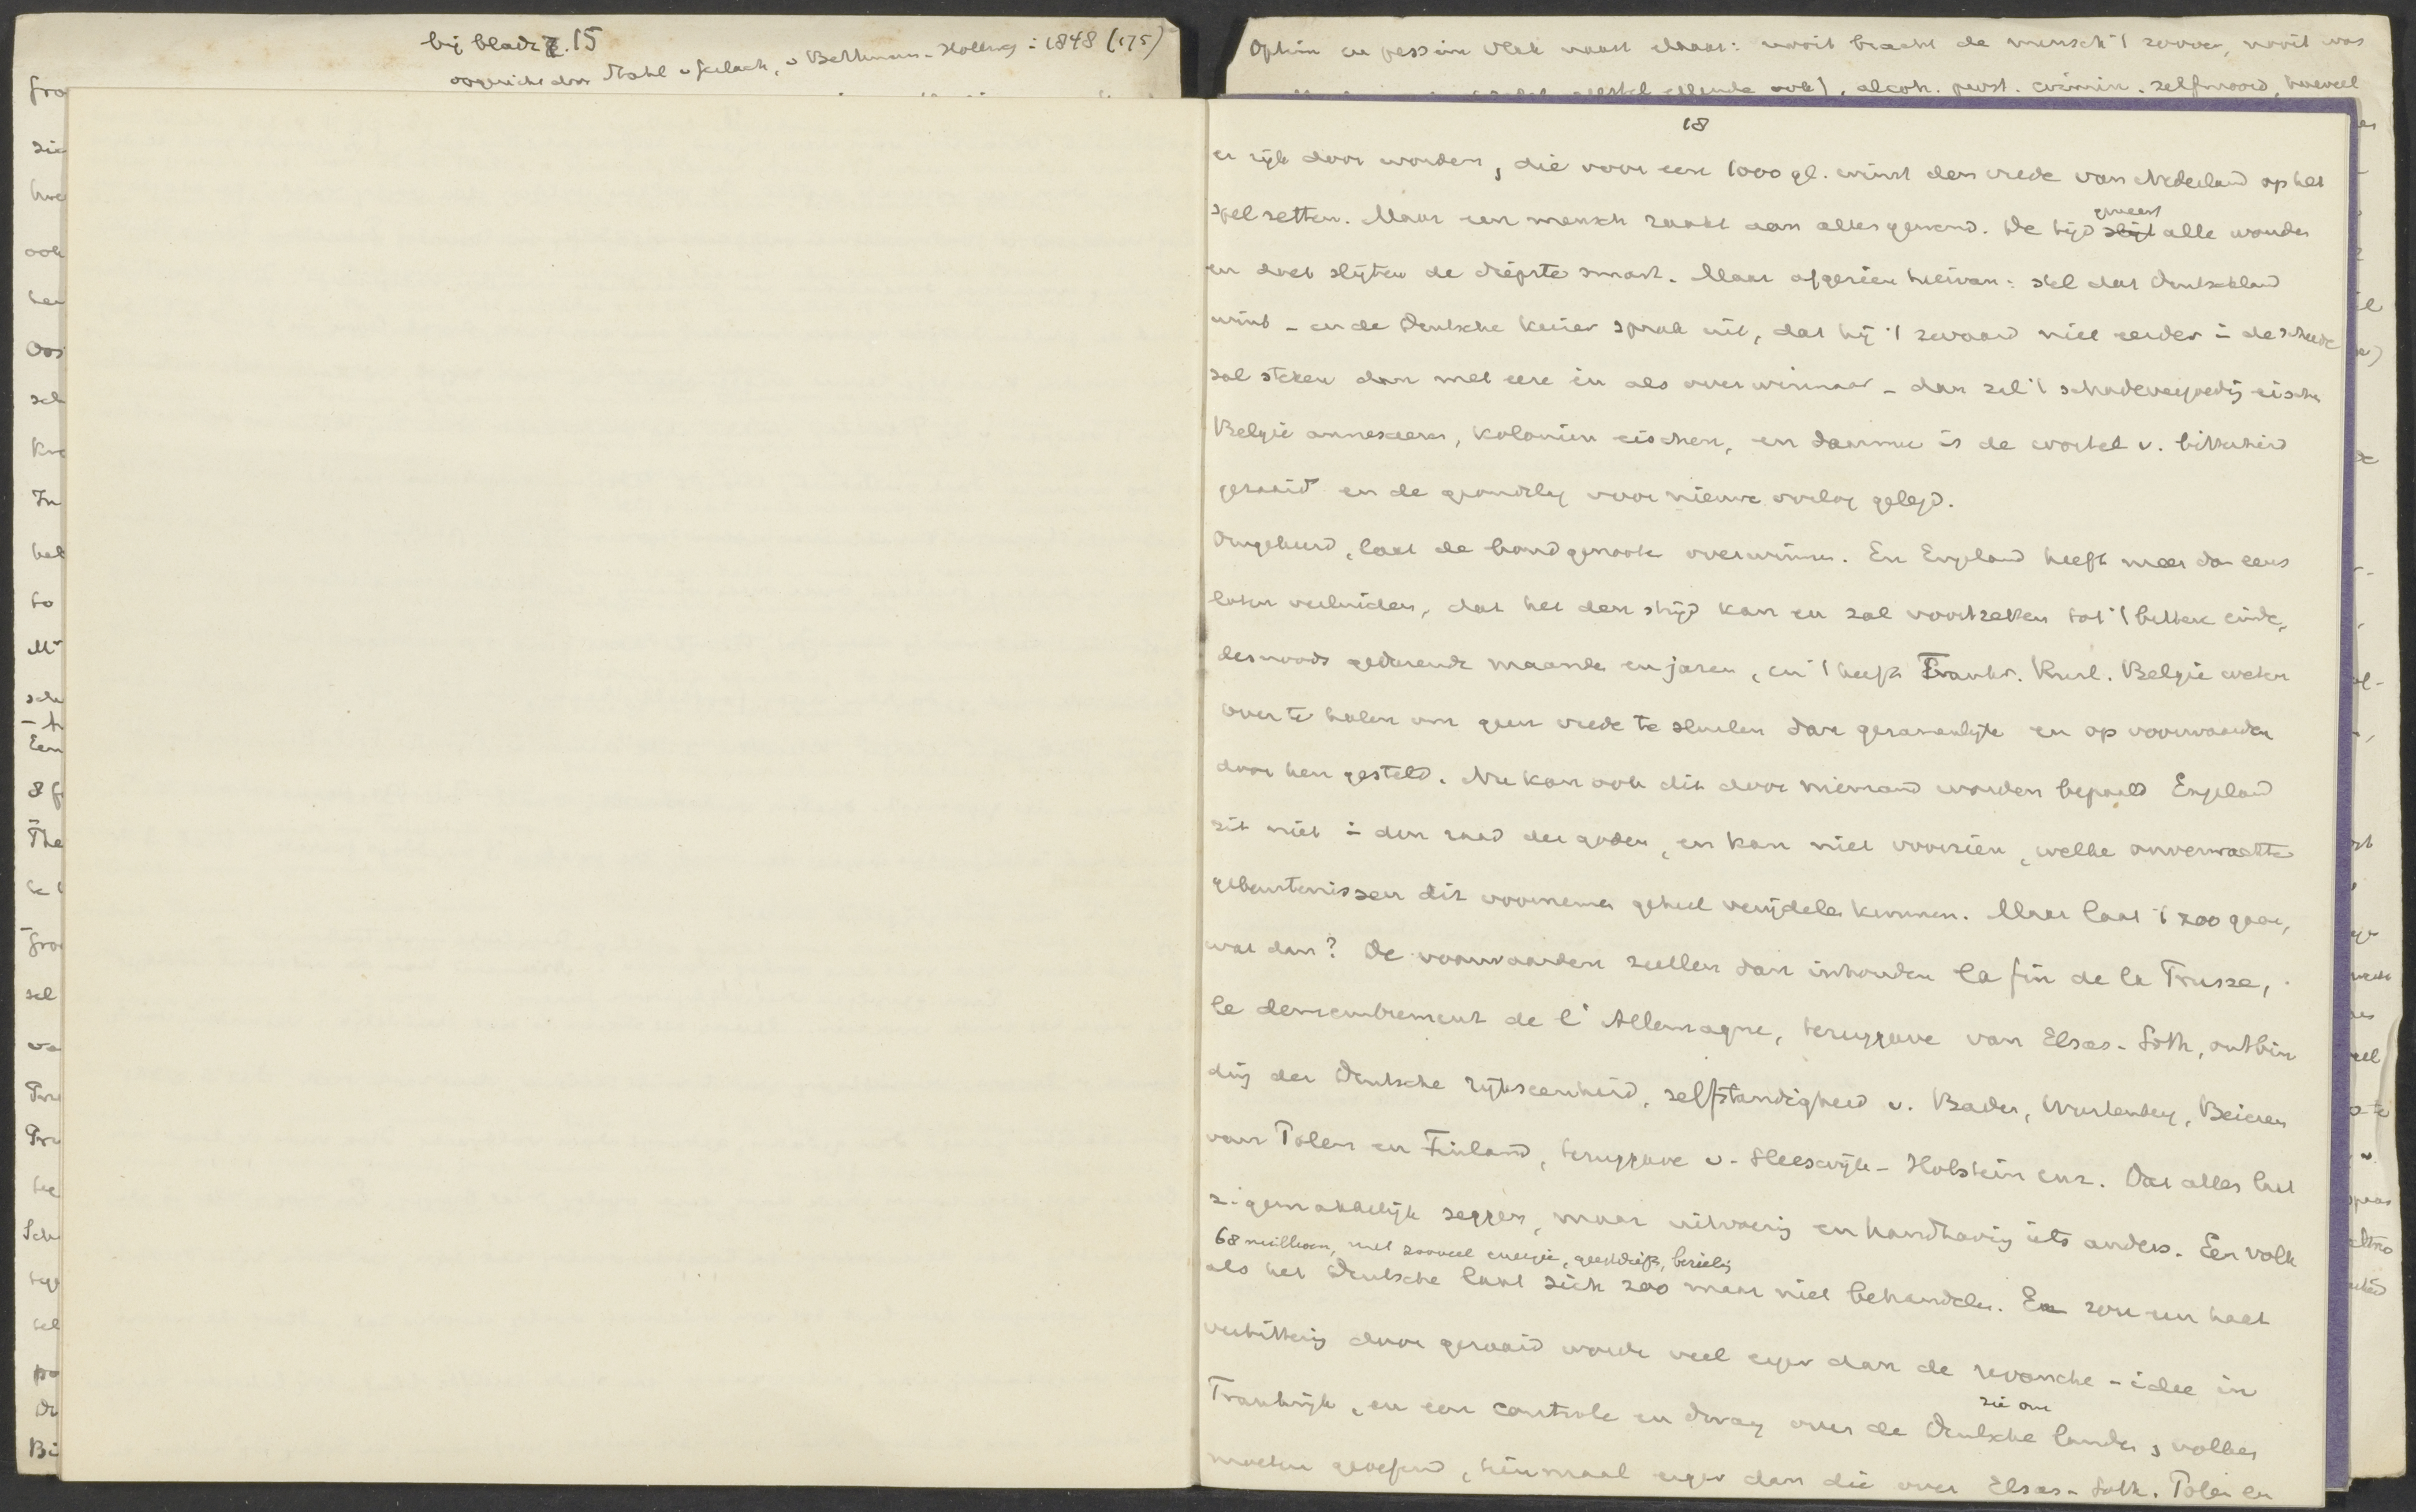 bij bladz. 15
opgericht door Stahl v Gerlach, v Bethmann-Hollweg in 1848 (175)
Optim en pessim vlak naast elkaar: nooit bracht de mensch 't zoover, nooit was
alcoh. prost. crimin. zelfmoord, hoeveel
18
er rijk door worden, die voor een 1000 gl. winst den vrede van Nederland op het
spel zetten. Maar een mensch raakt aan alles gewend. De tijd geneest alle wonden
en doet slijten de diepste smart. Maar afgezien hiervan: stel dat Duitschland
wint - en de Duitsche keizer sprak uit, dat hij 't zwaard niet eerder in de scheede
zal steken dan met eere en als overwinnaar - dan zal 't schadevergoeding eischen
België annexeeren, koloniën eischen, en daarmee is de wortel v. bitterheid
gezaaid en de grondslag voor nieuwe oorlog gelegd.
Omgekeerd, laat de bondgenoote overwinnen. En Engeland heeft meer dan eens
laten verluiden, dat het den strijd kan en zal voortzetten tot 't bittere einde,
desnoods gedurende maanden en jaren, en 't heeft Frankr. Rusl. België weten
over te halen om geen vrede te sluiten dan gezamenlijk en op voorwaarden
door hen gesteld. Nu kan ook dit door niemand worden bepaald Engeland
zit niet in den raad der goden, en kan niet voorzien, welke onverwachte
gebeurtenissen dit voornemen geheel verijdelen kunnen. Maar laat 't zoo gaan,
wat dan? De voorwaarden zullen dan inhouden la fin de la Prusse,
le demembrement de l'Allemagne, teruggave van Elzas-Loth, ontbin
ding der Duitsche rijkseenheid, zelfstandigheid v. Baden, Wurtemberg, Beieren
van Polen en Finland, teruggave v. Sleeswijk-Holstein enz. Dat alles laat
z. gemakkelijk zeggen, maar uitvoering en handhaving iets anders. Een volk
68 millioen, met zooveel energie, geestdrift, bezieling
als het Duitsche laat zich zoo maar niet behandelen. Er zou een haat
verbittering door gezaaid worden veel erger dan de revanche-idee in
Frankrijk, en een controle en dwang over de Duitsche landen, volken
zie om
moeten geoefend, tienmaal erger dan die over Elzas-Loth. Polen en